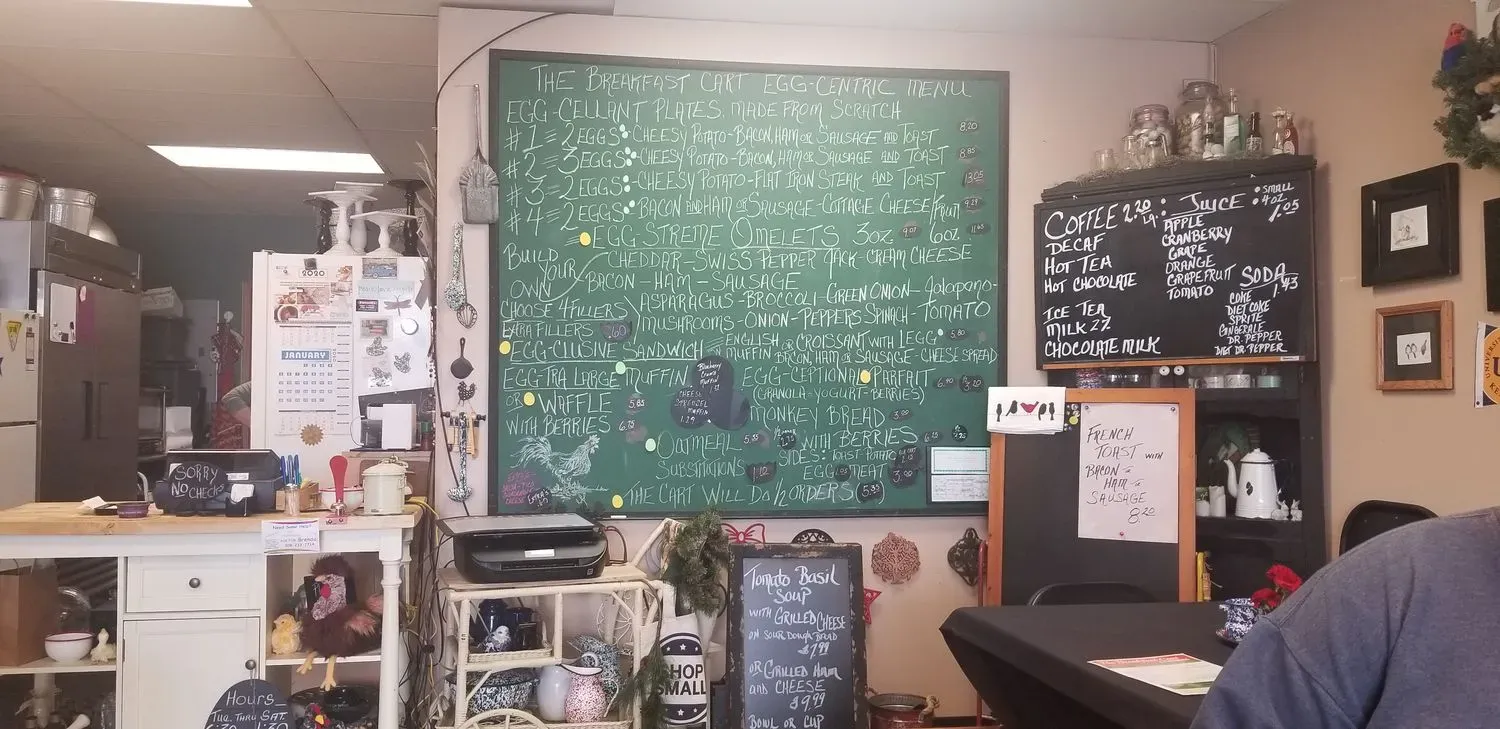 THE BREAKFAST CART EGG-CENTRIC MENU
EGG-CELLANT PLATES. MADE FROM SCRATCH
#1 = 2 EGGS CHEESY POTATO-BACON, HAM OR SAUSAGE AND TOAST 8.20
#2 = 3 EGGS CHEESY POTATO-BACON, HAM OR SAUSAGE AND TOAST 8.85
#3 = 2 EGGS -CHEESY POTATO-FLAT IRON STEAK AND TOAST 13.05
#4 = 2 EGGS - BACON AND HAM OR SAUSAGE-COTTAGE CHEESE/FRUIT 9.29
EGG-STREME OMELETS 3oz 9.07 6oz 11.05
BUILD YOUR OWN
CHOOSE 4 FILLERS
EXTRA FILLERS .60
CHEDDAR-SWISS PEPPER JACK-CREAM CHEESE
BACON-HAM-SAUSAGE
ASPARAGUS-BROCCOLI-GREEN ONION-Jalapano-
MUSHROOMS-ONION-PEPPERS SPINACH-TOMATO
EGG-CLUSIVE SANDWICH = ENGLISH MUFFIN OR CROISSANT WITH 1 EGG 5.80
BACON, HAM OR SAUSAGE-CHEESE SPREAD
EGG-TRA LARGE MUFFIN
OR WAFFLE 5.85
WITH BERRIES 6.75
Blueberry
MUFFIN
CHEESE
STREUSEL
MUFFIN
1.29
EGG-CEPTIONAL PARFAIT
(GRANOLA-YOGURT-BERRIES)
MONKEY BREAD 3.00
OATMEAL WITH BERRIES
SUBSTITUTIONS 1.10
SIDES: TOAST-POTATO
EGG MEAT
THE CART WILL DO 1/2 ORDERS 5.35
COFFEE 2.20
DECAF
HOT TEA
HOT CHOCOLATE
ICE TEA
MILK 2%
CHOCOLATE MILK
JUICE : SMALL 4OZ 1.05
APPLE
CRANBERRY
GRAPE
ORANGE
GRAPEFRUIT
TOMATO
SODA 1.43
COKE
DIET COKE
SPRITE
GINGERALE
DR. PEPPER
DIET DR. PEPPER
FRENCH
TOAST WITH
BACON
HAM
SAUSAGE
8.20
2020
JANUARY
SORRY
NO CHECKS
Need Some Help?
Hours
TUE. THRU SAT.
SHOP
SMALL
Tomato Basil
SOUP
WITH GRILLED CHEESE
ON SOUR DOUGH BREAD
$7.99
OR GRILLED HAM
AND CHEESE
$9.99
BOWL OR CUP